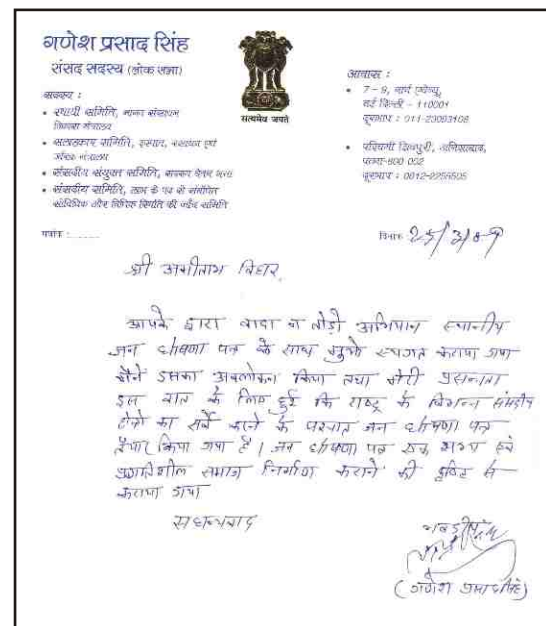 गणेश प्रसाद सिंह
संसद सदस्य (लोक सभा)
सदस्य :
• स्थायी समिति, मानव संसाधन
विकास मंत्रालय
• सलाहकार समिति, इस्पात, रसायन एवं
मंत्रालय
• संसदीय संयुक्त समिति, वेतन भत्ता
• संसदीय समिति, लाभ के पद से संबंधित
सांविधिक और विधिक स्थिति की जाँच समिति
सत्यमेव जयते
आवास :
• 7 - 9, नार्थ एवेन्यू,
नई दिल्ली - 110001
दूरभाष : 011-23093108
• पश्चिमी शिवपुरी, अनिसाबाद,
पटना-800 002
दूरभाष : 0612-2256505
पत्रांक :
दिनांक 25/3/09
श्री अमीताभ बिहार,
आपके द्वारा वादा न तोड़ो अभियान स्थानीय
जन घोषणा पत्र के साथ मुझे कराया गया
मैंने इसका अवलोकन किया तथा मेरी प्रसन्नता
इस बात के लिए हुई कि राष्ट्र के विभिन्न संसदीय
क्षेत्रों का सर्वे करने के पश्चात जन घोषणा पत्र
तैयार किया गया है। जन घोषणा पत्र एक सभ्य एवं
प्रगतिशील समाज निर्माण कराने की दृष्टि से
कराया गया
सधन्यवाद
भवदीय
(गणेश प्रसाद सिंह)